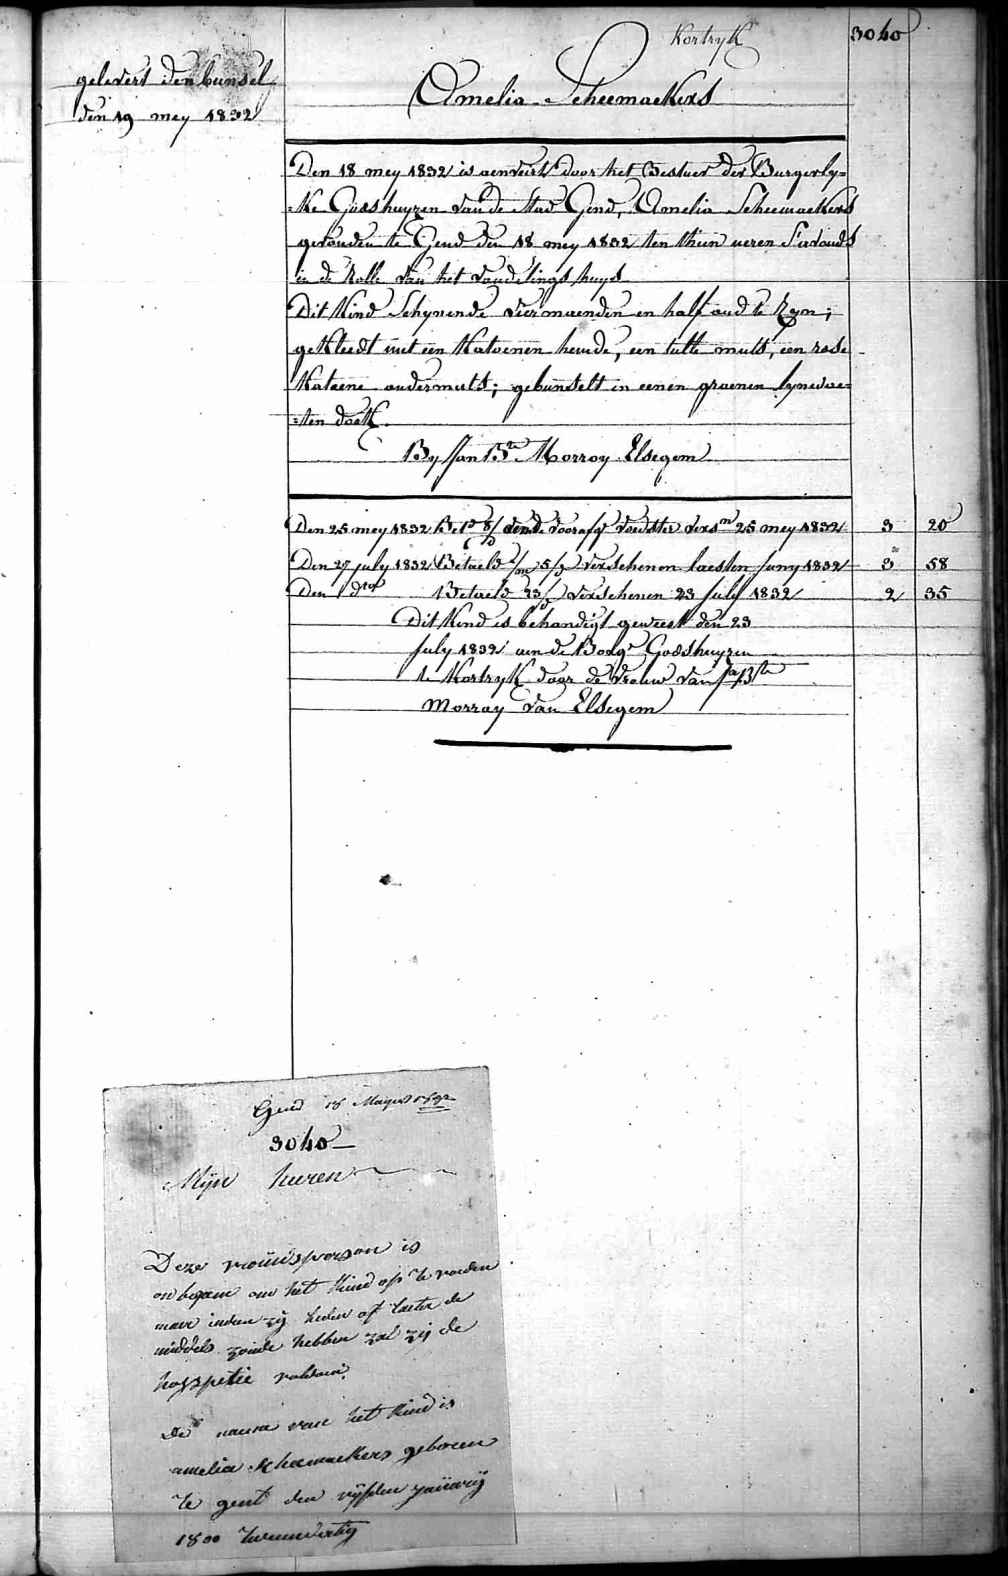 Kortryk
3040
gelevert den bunsel
den 19 mey 1832
Amelia Scheemaekers
Den 18 mey 1832 is aenveirt door het Bestuer der Burgerly=
=ke Godshuyzen van de Stad Gend, Amelia Scheemaekers
gevonden te Gend den 18 mey 1832 ten thien ueren S'avonds
in de Rolle van het vondelings huys
Dit Kind Schynende viermaenden en half oud te Zyn;
gekleedt met een Katoenen hemde, een tulle muts, een rose
Katoene ondermuts; gebunselt in eenen groenen lynewae=
=ten doek.
By Jan Bte Morroy Elsegem
Den 25 mey 1832 voorafg 25 mey 1832 3 20
Den 27 july 1832 Betaeld 5/ verschenen laesten juny 1832 3 58
Den dto Betaeld 23/ verschenen 23 july 1832 2 35
Dit Kind is behandigt geweest den 23
july 1832 aen de Borgr Godshuyzen
te Kortryk door de vrouw van Ja Bte
Morroy van Elsegem
Gend 18 1832
3040
Mijn heeren
Deze vrouwspersoon is
onbqaem om het kind op te voeden
maer indien zij heden of laeter de
middels zoude hebben zal zij de
hospetie
De naem van het Kind is
amelia scheemaekers geboren
te gent den vijfden januarij
1800 tweendertig